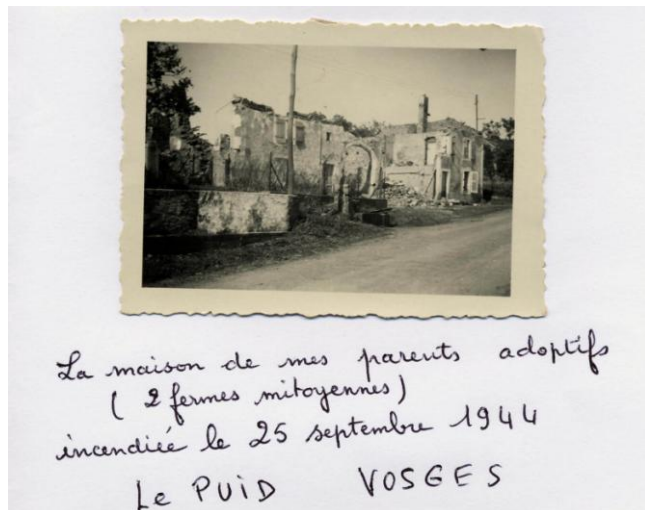 La maison de mes parents adoptifs
( 2 fermes mitoyennes)
incendiée le 25 septembre 1944
Le PUiD VOSGES